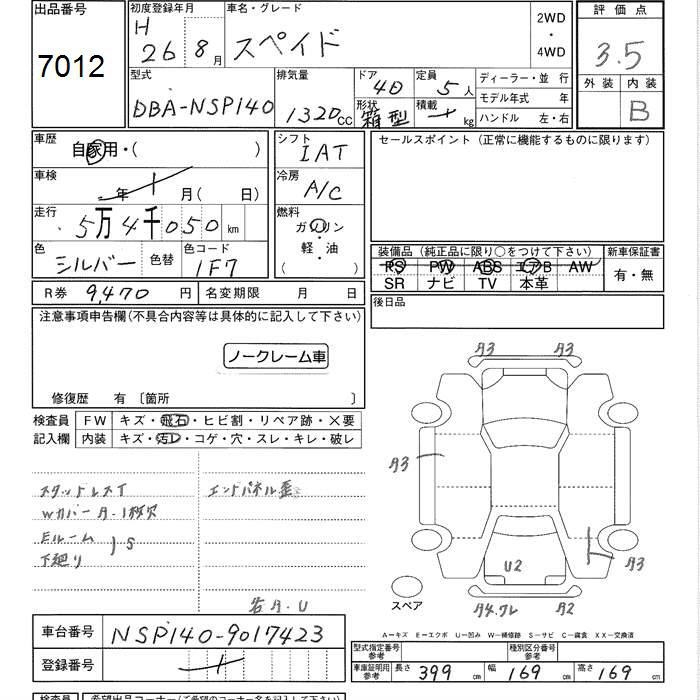 出品番号 7012
初度登録年月 H 26 8月
車名・グレード スペイド
2WD ・ 4WD
評価点 3.5
外装 内装 B
型式 DBA-NSP140
排気量 1320cc
ドア 4D
形状 箱型
定員 5人
積載 kg
ディーラー・並行
モデル年式 年
ハンドル 左・右
車歴 自家用・( )
車検 年 月(日)
走行 5万4千050km
色 シルバー 色替
色コード 1F7
シフト IAT
冷房 A/C
燃料 ガソリン・軽・油 ( )
セールスポイント(正常に機能するものに限ります)
装備品(純正品に限り○をつけて下さい) 新車保証書
PS PW ABS エアB AW 有・無
SR ナビ TV 本革
R券 9,470円 名変期限 月 日
後日品
注意事項申告欄(不具合内容等は具体的に記入して下さい)
ノークレーム車
修復歴 有〔箇所 〕
検査員記入欄
FW キズ・飛石・ヒビ割・リペア跡・×要
内装 キズ・汚レ・コゲ・穴・スレ・キレ・破レ
スタッドレスT
Wカバー A・1枚欠
Eルーム
下廻り S
エンドパネル歪
各A・U
A3 A3
A3
A3
U2
A4.ワレ A2
スペア
A-キズ E-エクボ U-凹み W-補修跡 S-サビ C-腐食 XX-交換済
車台番号 NSP140-9017423
登録番号
型式指定番号 参考 種別区分番号 参考
車庫証明用 参考 長さ 399cm 幅 169cm 高さ 169cm
検査員 希望出品コーナー(ご希望のコーナー名を記入して下さい)